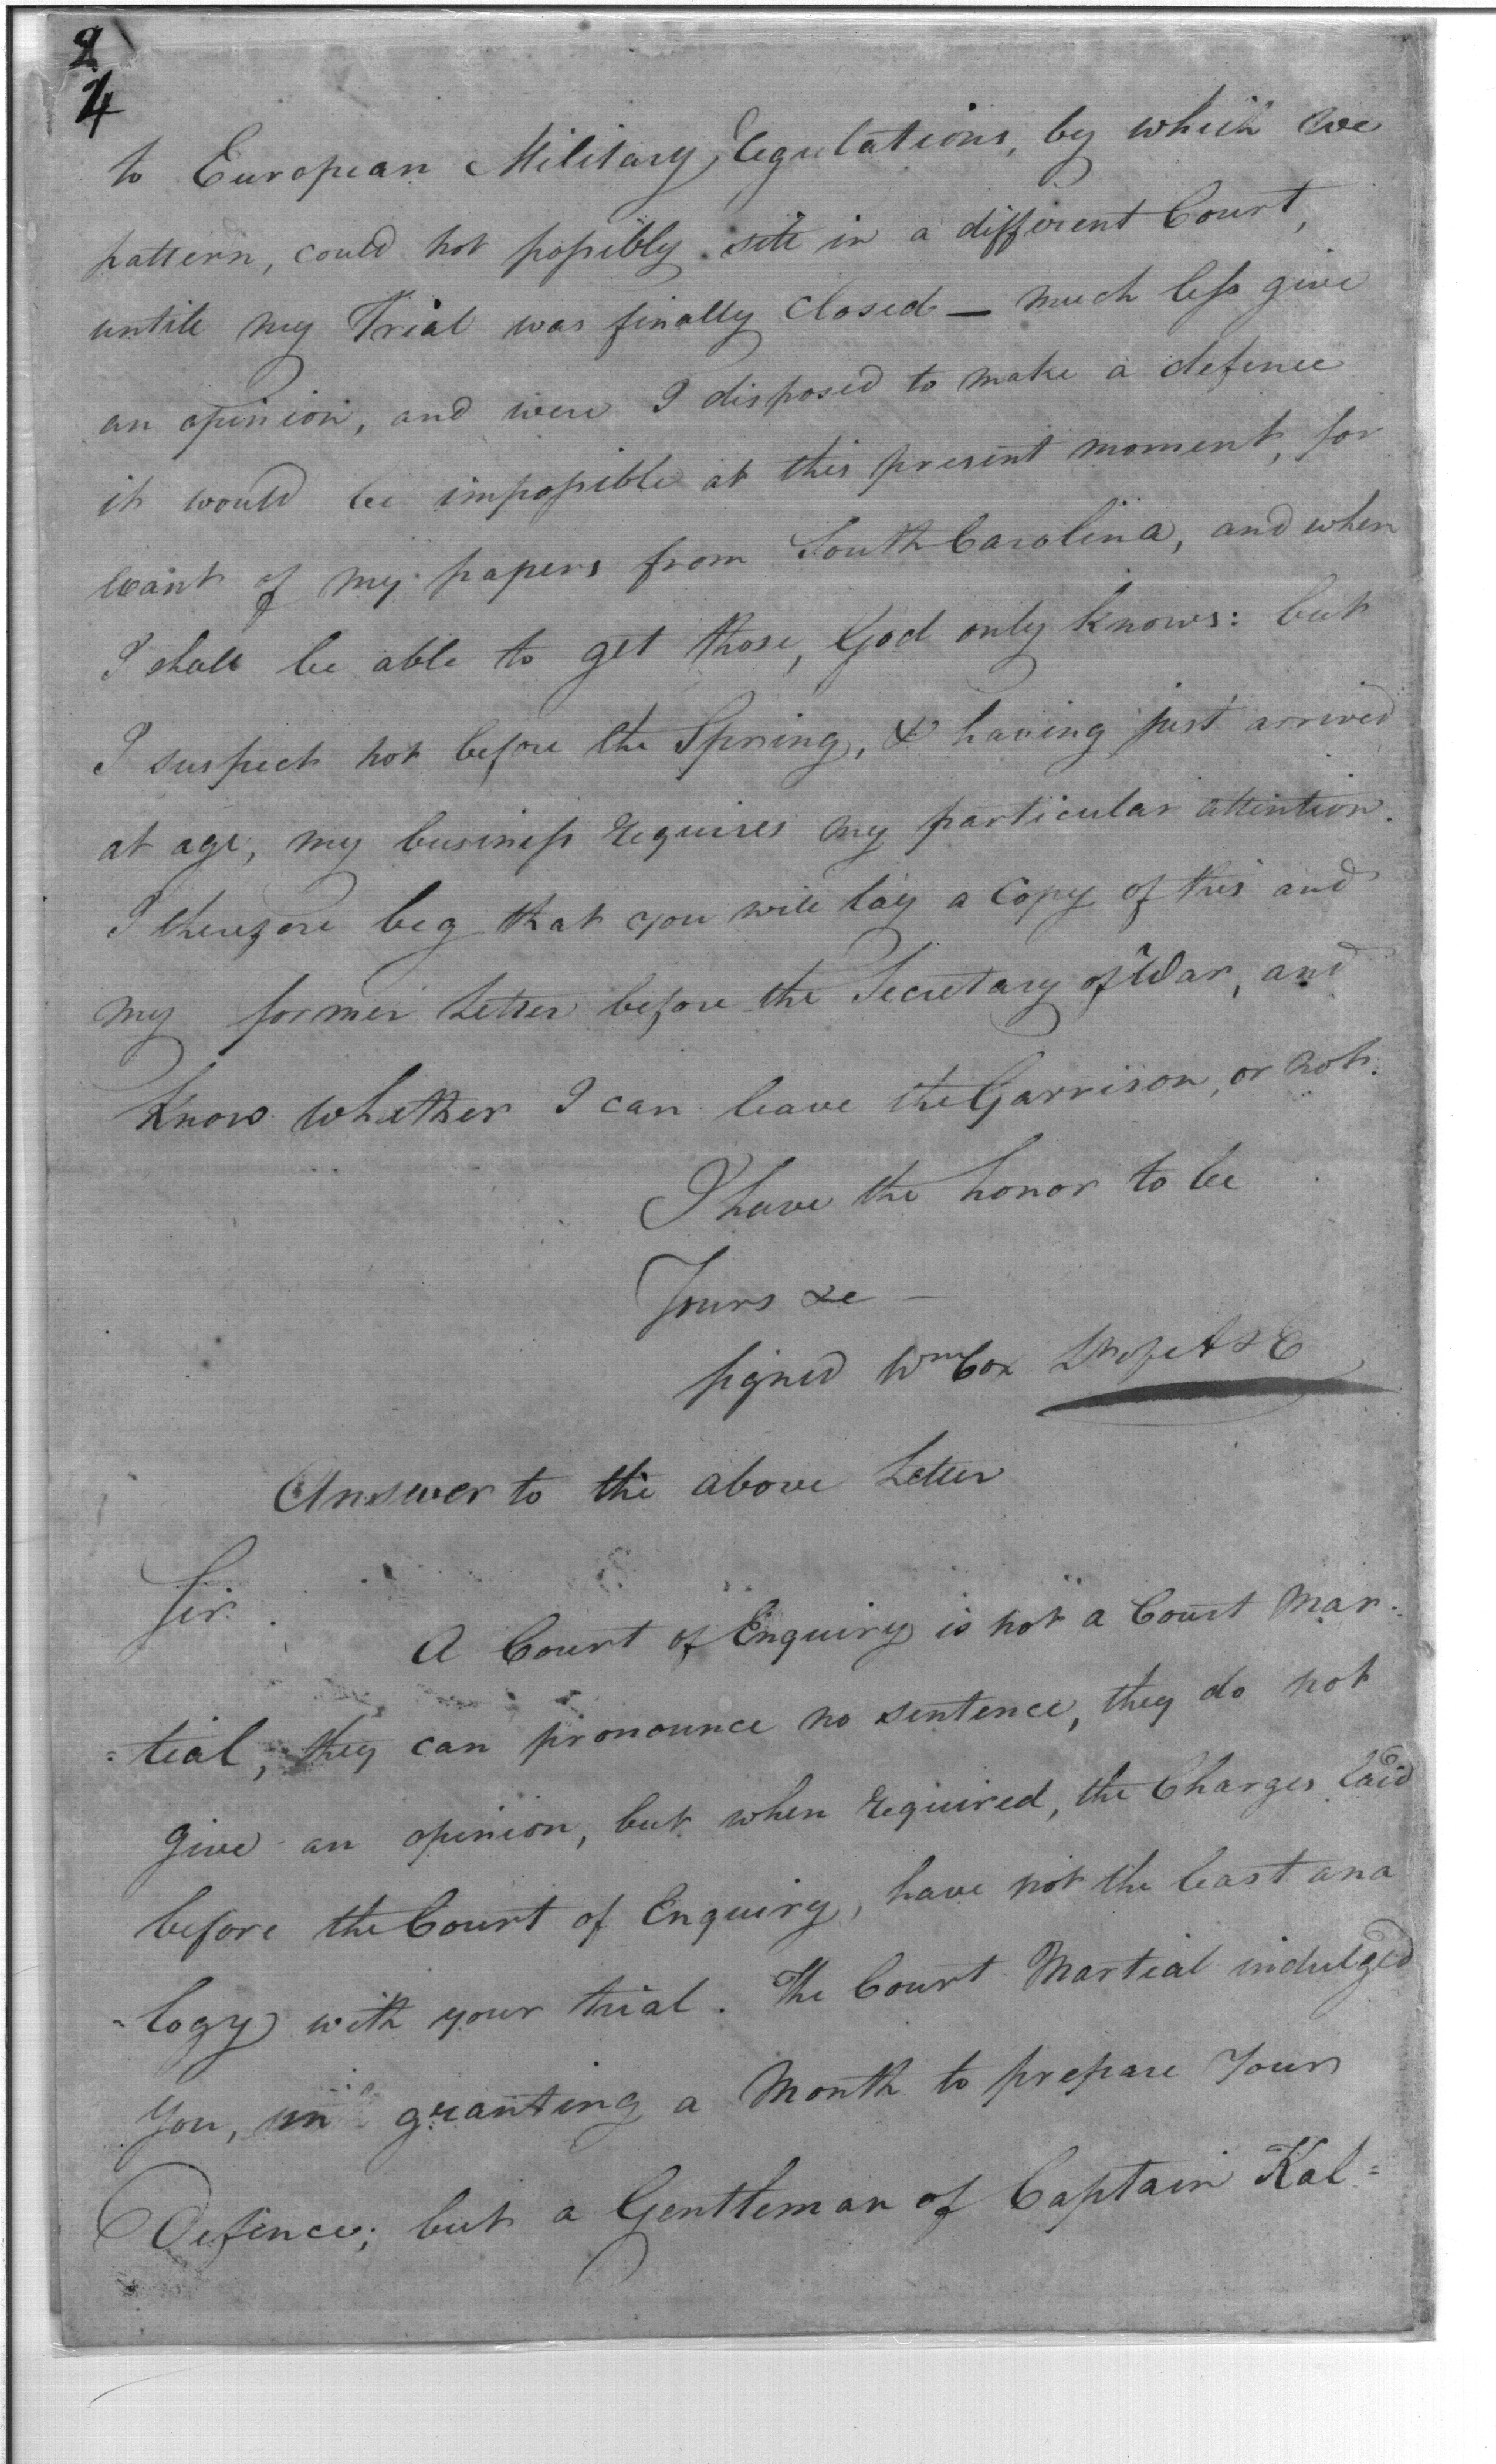 2
4
to European Military regulations, by which we
pattern, could not possibly sitt in a different Court,
untill my Trial was finally Closed — much less give
an opinion, and were I disposed to make a defence
it would be impossible at this present moment, for
want of my papers from South Carolina, and when
I shall be able to get those, God only knows: but
I suspect not before the Spring, & having just arrived
at age, my business requires my particular attention.
I therefore beg that you will lay a Copy of this and
my former Letter before the Secretary of War, and
Know whether I can leave the Garrison, or not.
I have the honor to be
Yours &c —
signed Wm Cox Lt of A & E
Answer to the above Letter
Sir.
A Court of Enquiry is not a Court Mar-
=tial, they can pronounce no sentence, they do not
give an opinion, but when required, the Charges laid
before the Court of Enquiry, have not the least ana
-logy with your trial. The Court Martial indulged
You, in granting a Month to prepare Your
Defence; but a Gentleman of Captain Kal=